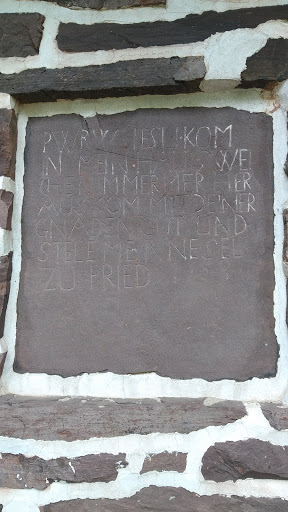 IESU KOM
IN MEIN HAUS WEI
CHE NIMMER MER HIER
AUS KOM MIT DEINER
GNADEN GUT UND
STELE MEI NE SEL
ZU FRIED